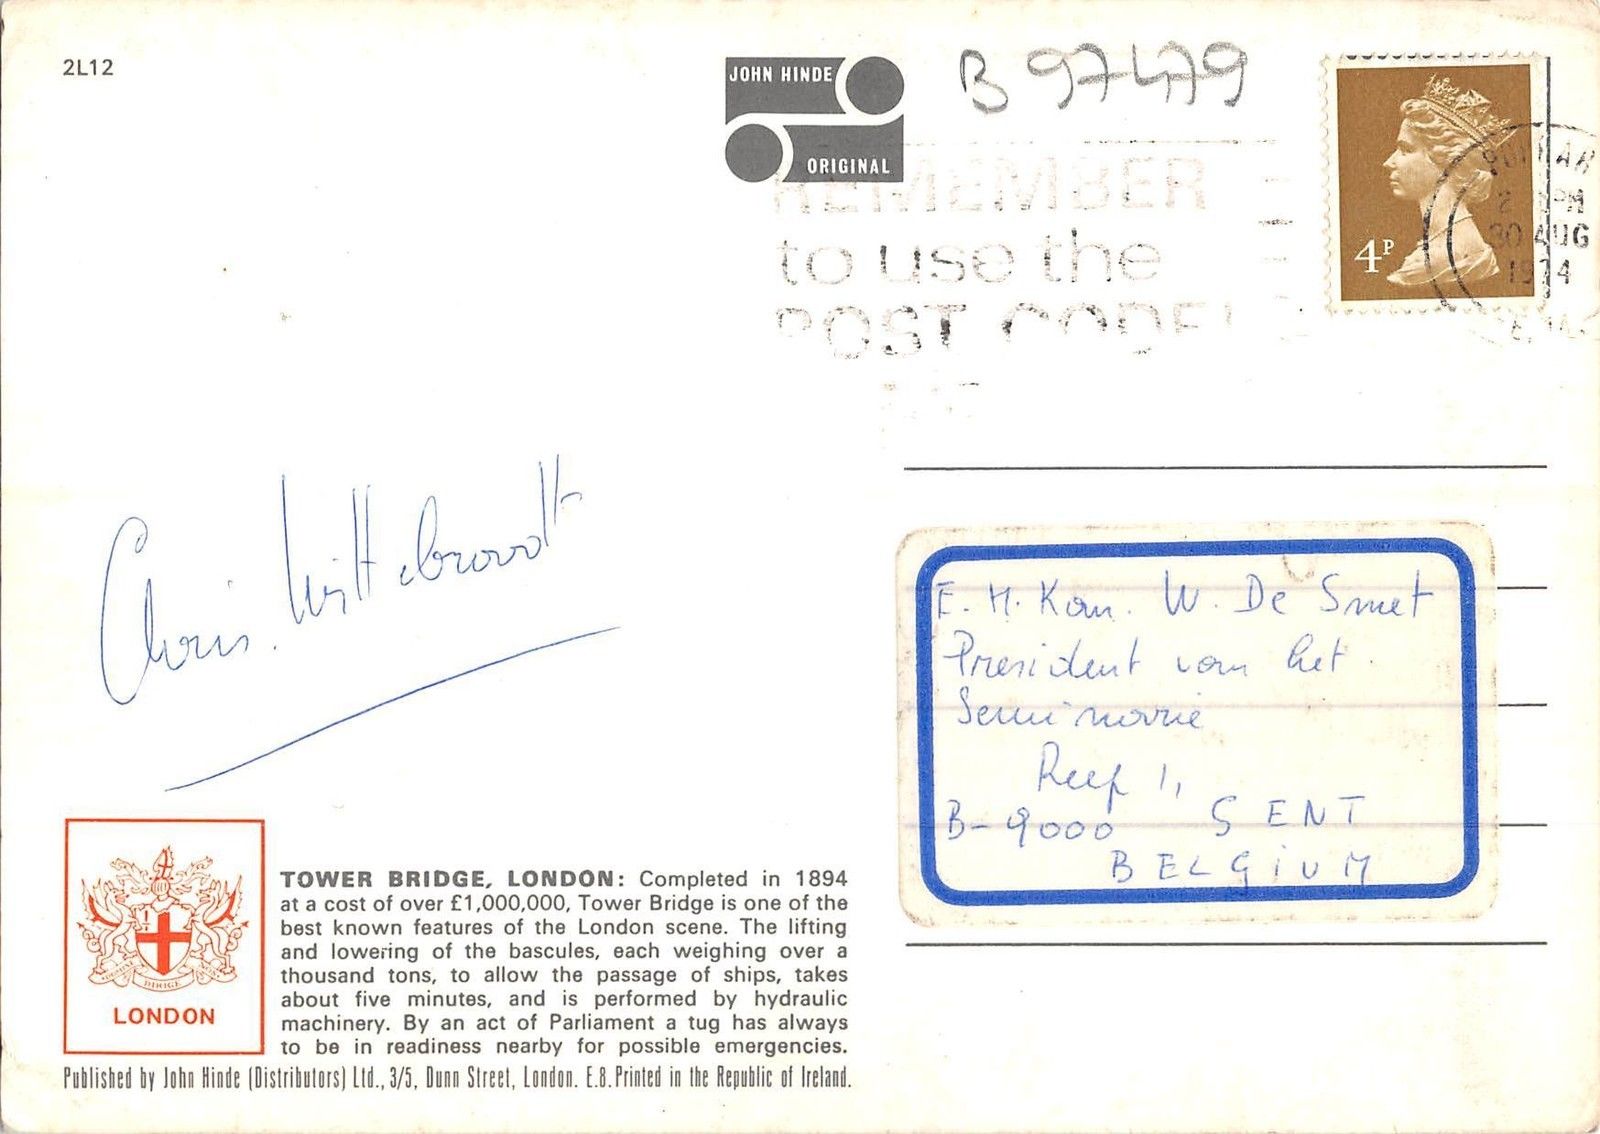 2L12
JOHN HINDE
ORIGINAL
B 97479
REMEMBER
to use the
POST CODE
4P
PM
30 AUG
1974
Chris. Wittebroodt
E. H. Kan. W. De Smet
President van het
Seminarie
Reep 1,
B-9000 GENT
BELGIUM
DOMINE DIRIGE NOS
LONDON
TOWER BRIDGE, LONDON: Completed in 1894
at a cost of over £1,000,000, Tower Bridge is one of the
best known features of the London scene. The lifting
and lowering of the bascules, each weighing over a
thousand tons, to allow the passage of ships, takes
about five minutes, and is performed by hydraulic
machinery. By an act of Parliament a tug has always
to be in readiness nearby for possible emergencies.
Published by John Hinde (Distributors) Ltd., 3/5, Dunn Street, London. E.8. Printed in the Republic of Ireland.